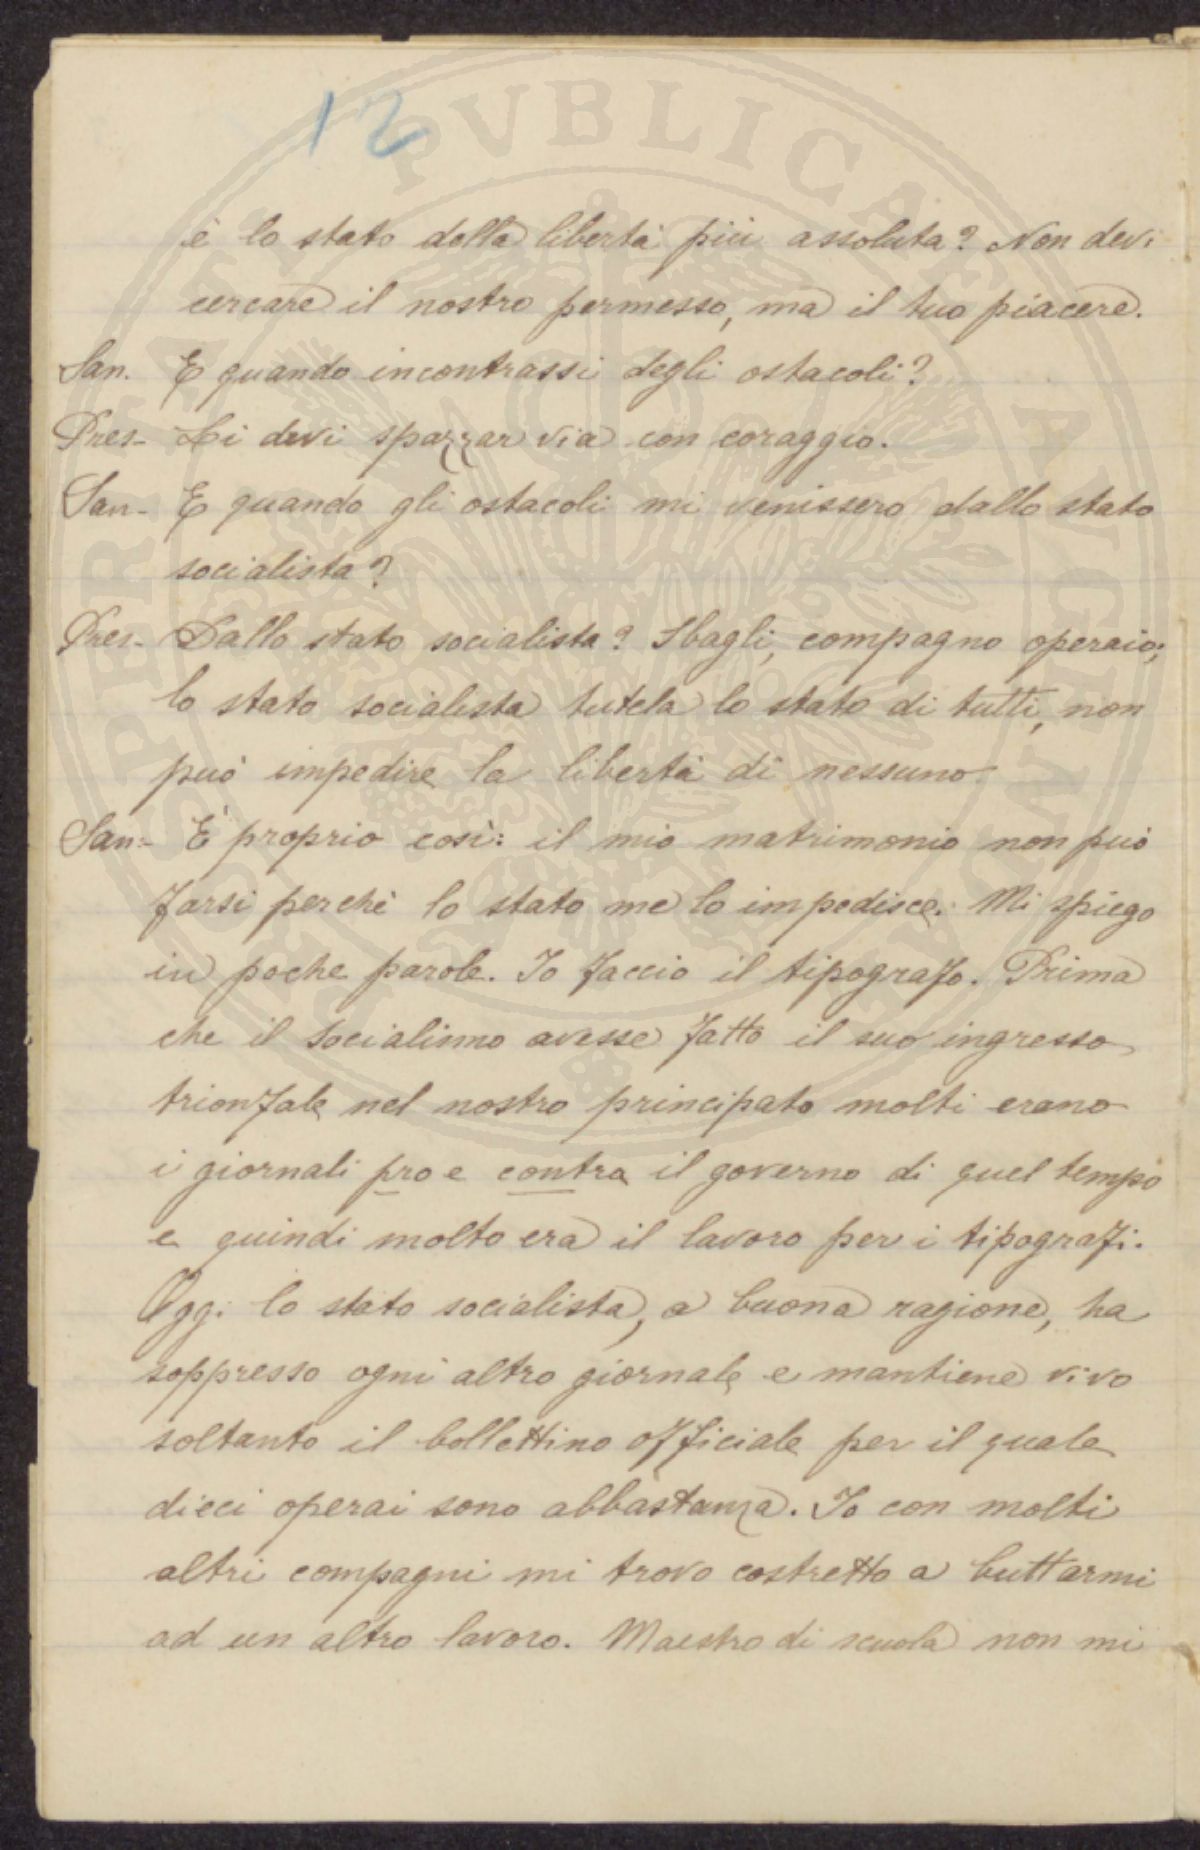 12
è lo stato della libertà più assoluta? Non devi
cercare il nostro permesso, ma il tuo piacere.
San. E quando incontrassi degli ostacoli?
Pres- Li devi spazzar via con coraggio.
San- E quando gli ostacoli mi venissero dallo stato
socialista?
Pres- Dallo stato socialista? Sbagli, compagno operaio;
lo stato socialista tutela lo stato di tutti, non
può impedire la libertà di nessuno.
San:- È proprio così: il mio matrimonio non può
farsi perchè lo stato me lo impedisce. Mi spiego
in poche parole. Io faccio il tipografo. Prima
che il socialismo avesse fatto il suo ingresso
trionfale nel nostro principato molti erano
i giornali pro e contra il governo di quel tempo
e quindi molto era il lavoro per i tipografi.
Oggi lo stato socialista, a buona ragione, ha
soppresso ogni altro giornale e mantiene vivo
soltanto il bollettino officiale per il quale
dieci operai sono abbastanza. Io con molti
altri compagni mi trovo costretto a buttarmi
ad un altro lavoro. Maestro di scuola non mi